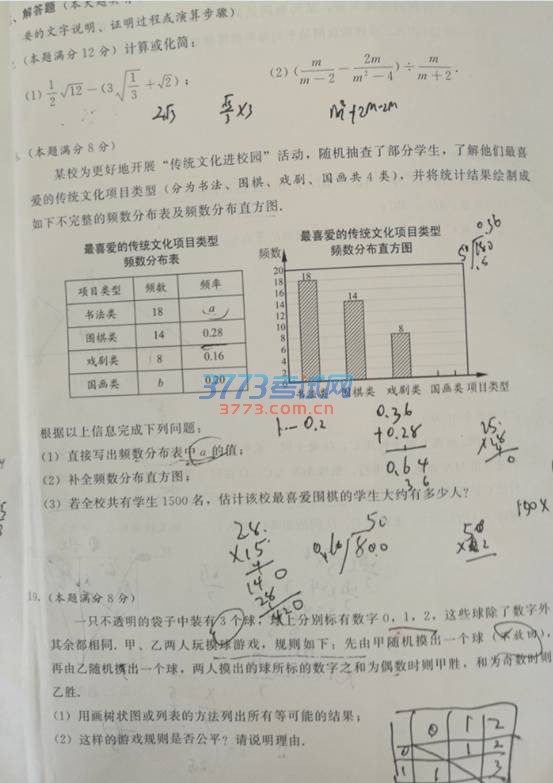 解答题
要的文字说明、证明过程或演算步骤)
(本题满分 12 分) 计算或化简:
(1) 1/2 √12 - (3√(1/3) + √2);
(2) (m/(m-2) - 2m/(m²-4)) ÷ m/(m+2).
2√3
(本题满分 8 分)
某校为更好地开展“传统文化进校园”活动, 随机抽查了部分学生, 了解他们最喜
爱的传统文化项目类型 (分为书法、围棋、戏剧、国画共 4 类), 并将统计结果绘制成
如下不完整的频数分布表及频数分布直方图.
最喜爱的传统文化项目类型
频数分布表
项目类型 频数 频率
书法类 18 a
围棋类 14 0.28
戏剧类 8 0.16
国画类 b 0.20
最喜爱的传统文化项目类型
频数分布直方图
频数
20
18
16
14
12
10
8
6
4
2
0
18
14
8
书法类 围棋类 戏剧类 国画类 项目类型
0.36
3773考试网
3773.com.cn
根据以上信息完成下列问题:
(1) 直接写出频数分布表中 a 的值;
(2) 补全频数分布直方图;
(3) 若全校共有学生 1500 名, 估计该校最喜爱围棋的学生大约有多少人?
1-0.2
0.36
+0.28
0.64
28
×15
140
28
420
50
800
19. (本题满分 8 分)
一只不透明的袋子中装有 3 个球, 球上分别标有数字 0, 1, 2, 这些球除了数字外
其余都相同. 甲、乙两人玩摸球游戏, 规则如下: 先由甲随机摸出一个球 (不放回),
再由乙随机摸出一个球, 两人摸出的球所标的数字之和为偶数时则甲胜, 和为奇数时则
乙胜.
(1) 用画树状图或列表的方法列出所有等可能的结果;
(2) 这样的游戏规则是否公平? 请说明理由.
0 1 2
0 1 2
1 1 3